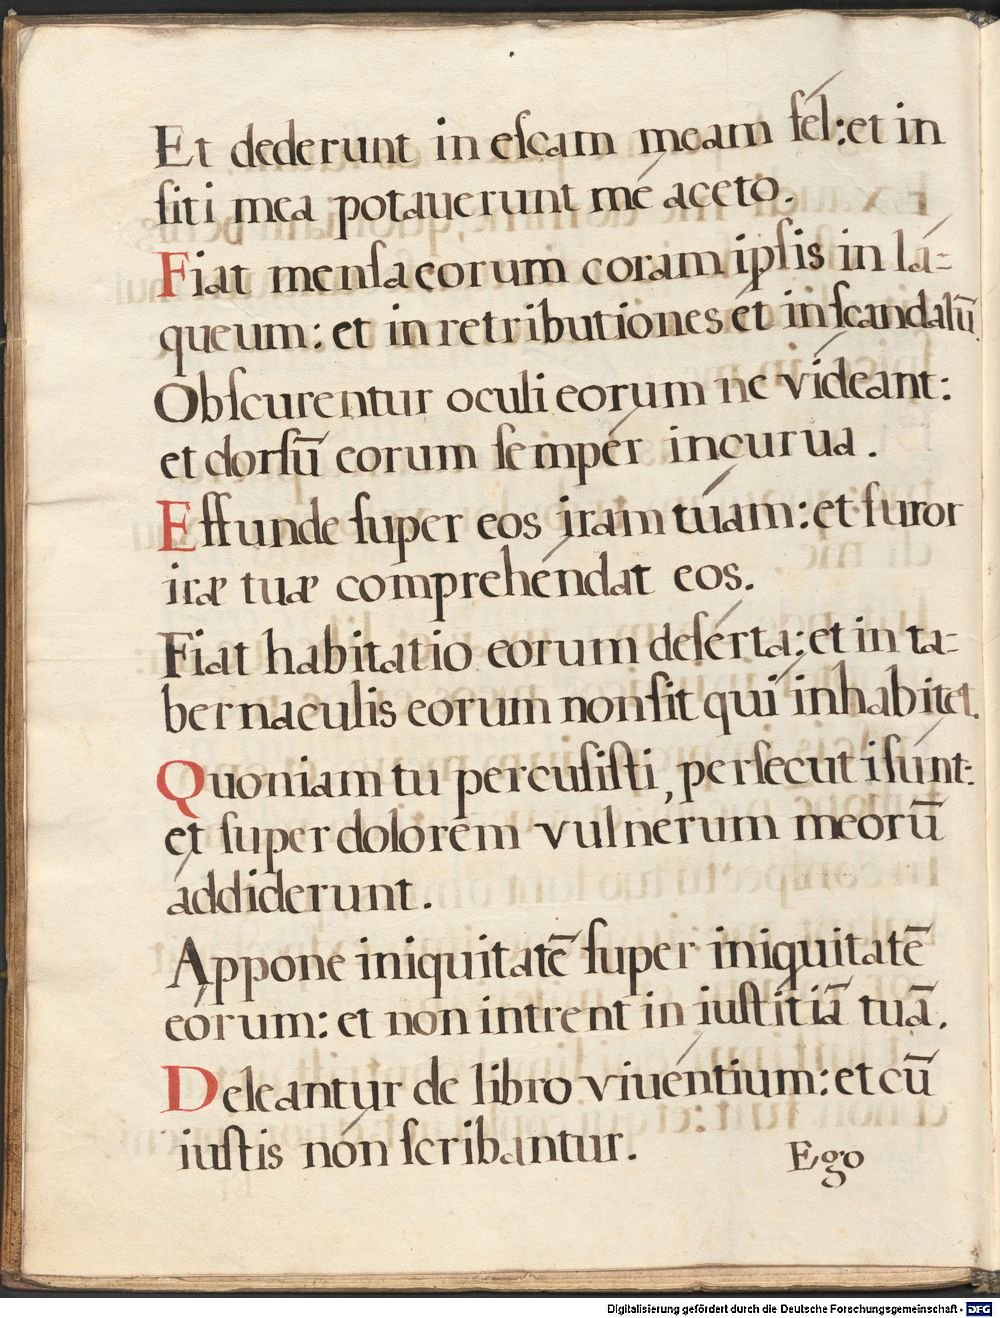 Et dederunt in eſcam meam fél: et in
ſiti mea potauerunt mé aceto.
Fiat menſa eorum coram ipſis in lá=
queum: et in retributiones ét in ſcandalū.
Obſcurentur oculi eorum ne vídeant:
et dorſū eorum ſempér incurua.
Effunde ſuper eos iram túam: et furor
iræ tuæ comprehéndat eos.
Fiat habitatio eorum deſérta: et in ta=
bernaculis eorum non ſit qui inhabitet.
Quoniam tu percuſiſti, perſecuti ſúnt:
et ſuper dolorem vulnerum meorū
addiderunt.
Appone iniquitatē ſuper iniquitatē
eorum: et non intrent in iuſtitiā tuā.
Deleantur de libro viuéntium: et cū
iuſtis nón ſcribantur.
Ego
Digitalisierung gefördert durch die Deutsche Forschungsgemeinschaft - DFG